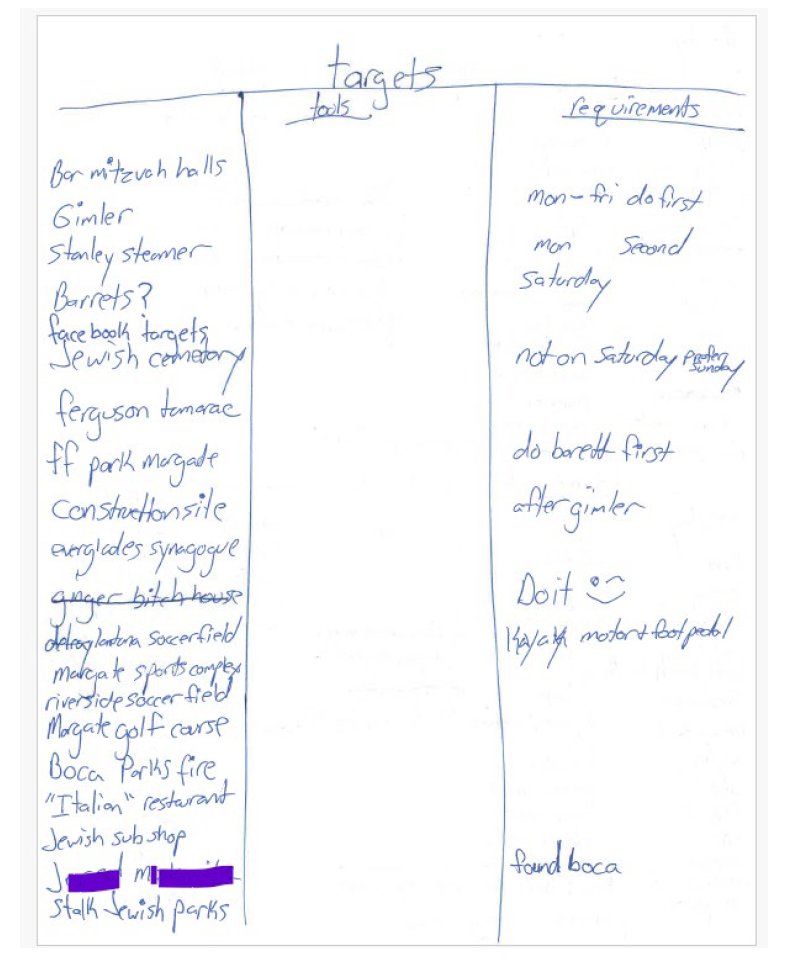 targets
tools
requirements
Bar mitzvah halls
mon - fri do first
Gimler
Stanley steamer
mon second
saturday
Barrets?
facebook targets
Jewish cemetary
not on Saturday prefer
Sunday
ferguson tamarac
ff park margate
do barett first
Construction site
after gimler
everglades synagogue
ginger bitch house
Do it
soccerfield
Kayak motor + foot pedal
margate sports complex
riverside soccer field
Margate golf course
Boca Parks fire
"Italian" restaurant
Jewish sub shop
found boca
Stalk Jewish parks